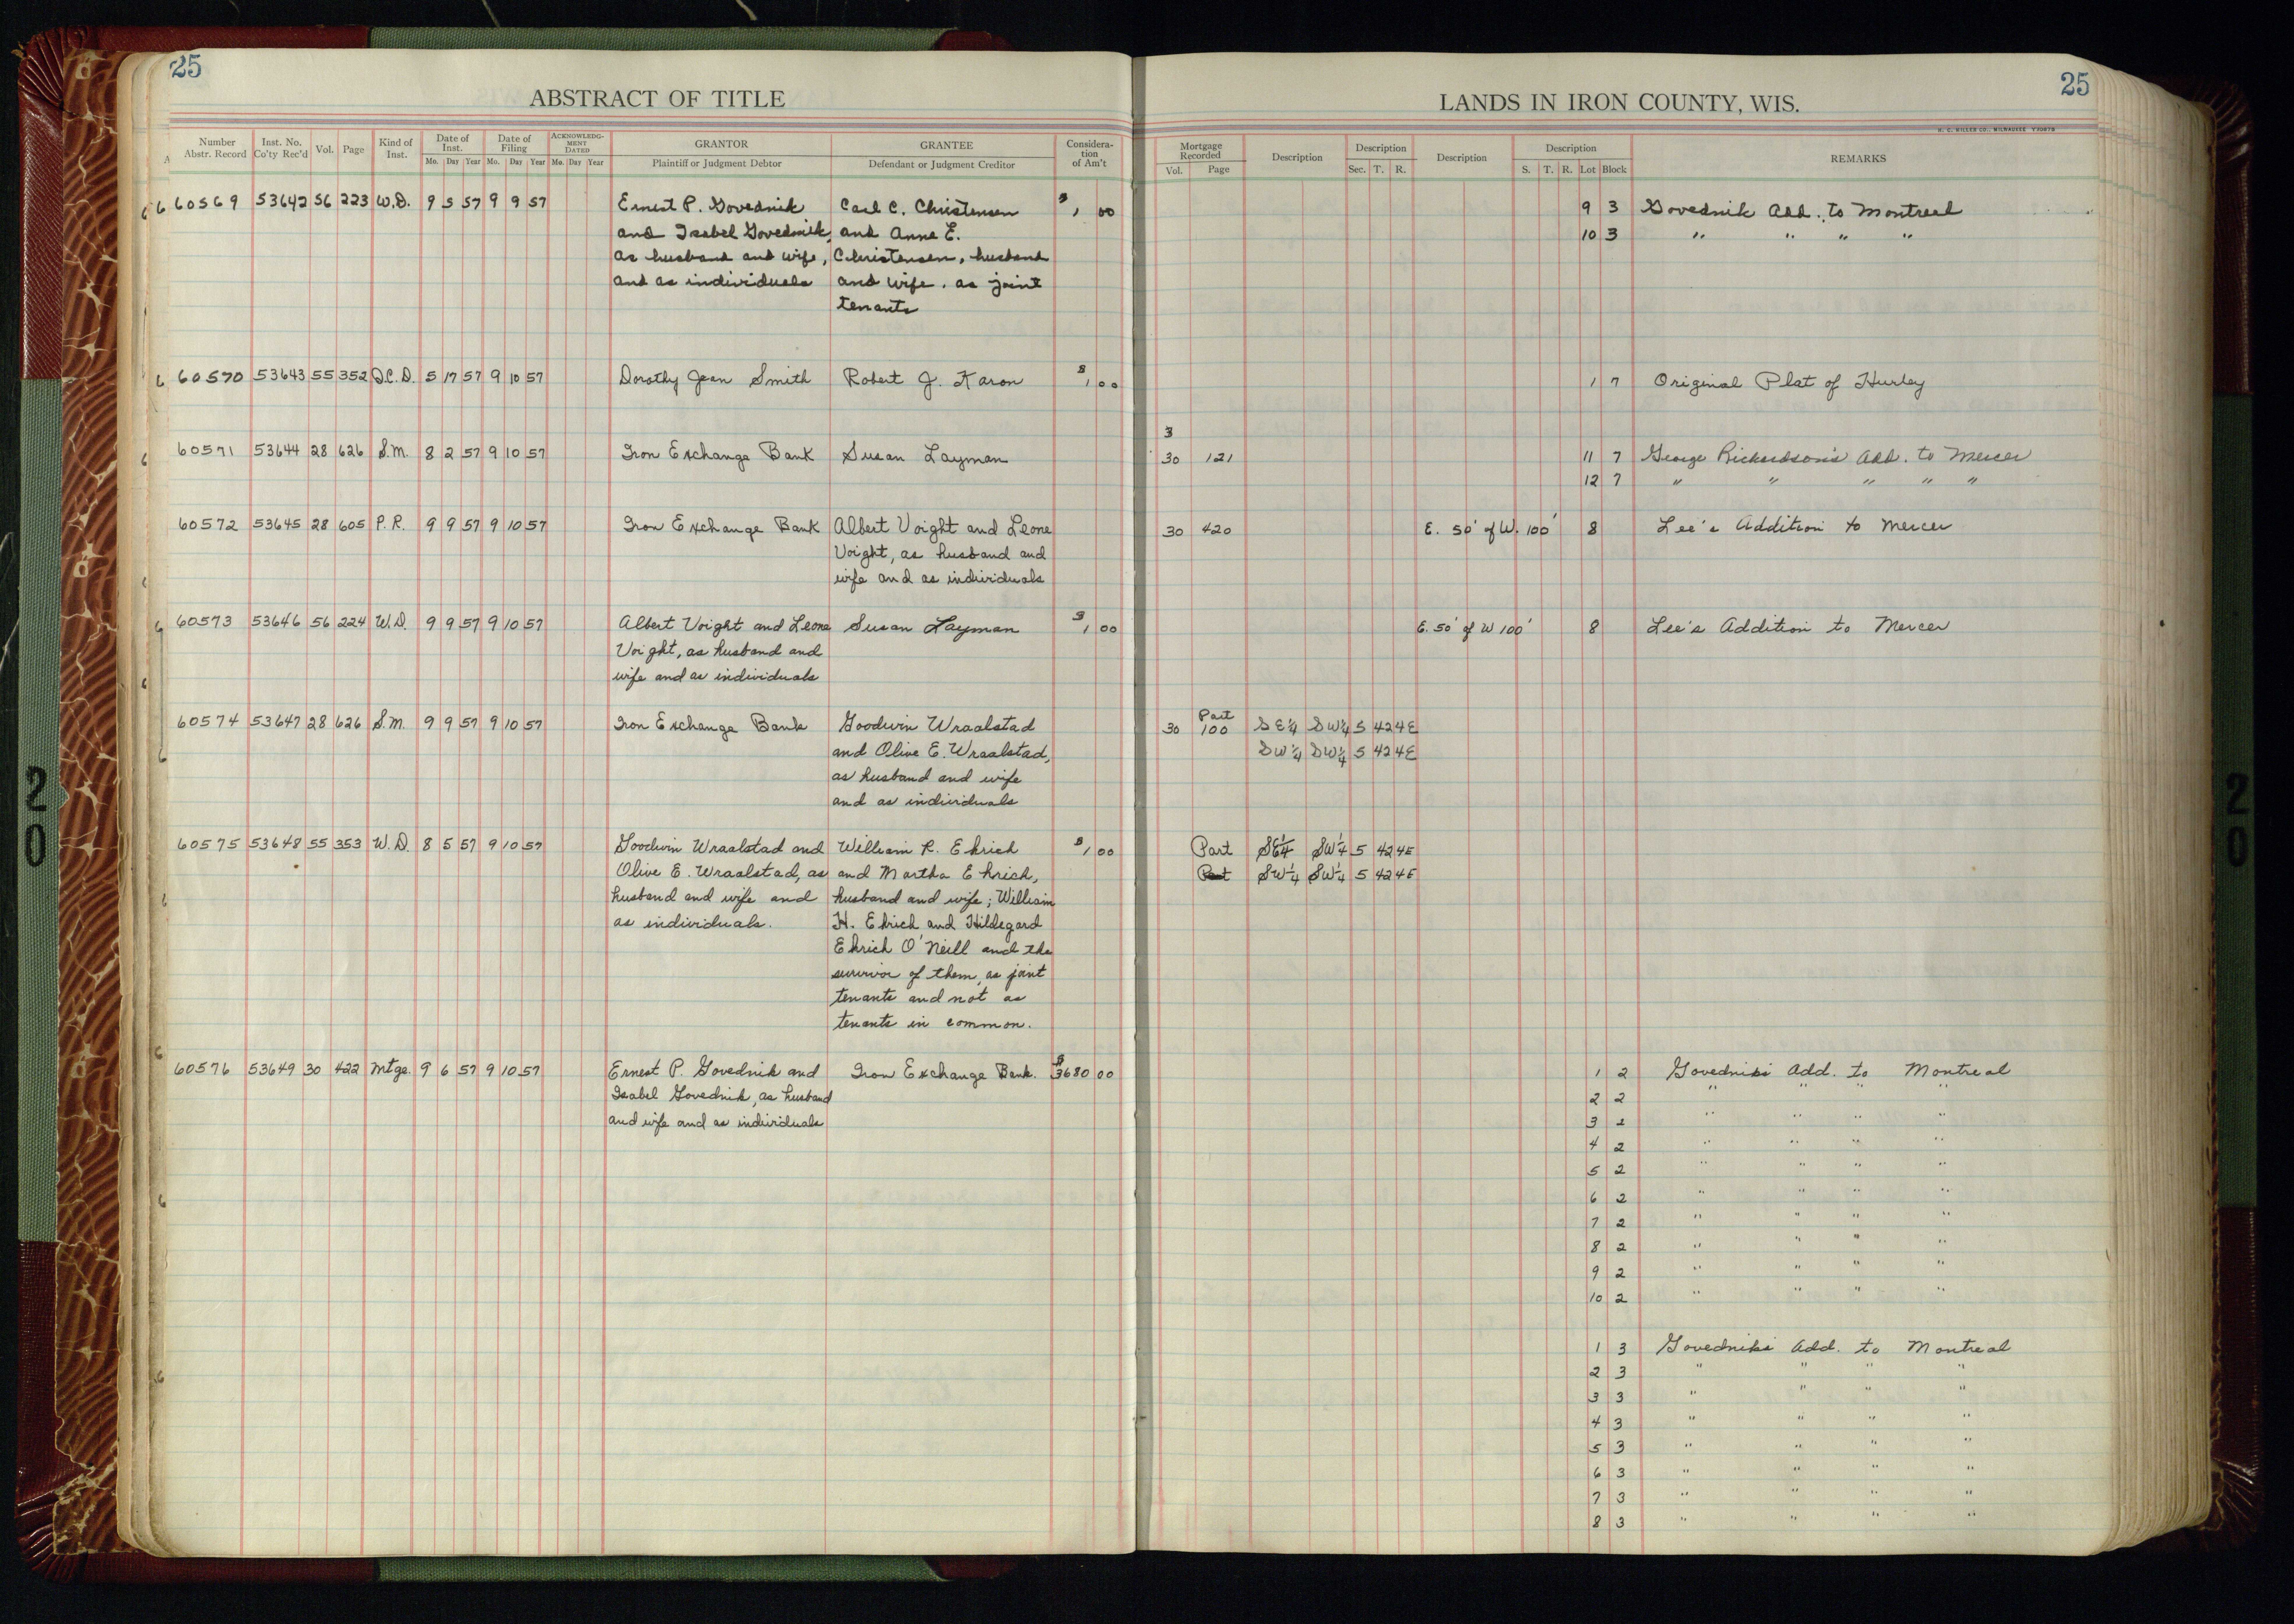 25
ABSTRACT OF TITLE
Number Abstr. Record Inst. No. Co'ty Rec'd Vol. Page Kind of Inst. Date of Inst. Mo. Day Year Date of Filing Mo. Day Year ACKNOWLEDGMENT DATED Mo. Day Year GRANTOR Plaintiff or Judgment Debtor GRANTEE Defendant or Judgment Creditor Consideration of Am't
60569 53642 56 223 W.D. 9 5 57 9 9 57 Ernest P. Govednik Carl C. Christensen $1 00
and Isabel Govednik, and Anne E.
as husband and wife, Christensen, husband
and as individuals and wife, as joint
tenants
60570 53643 55 352 Q.C.D. 5 17 57 9 10 57 Dorothy Jean Smith Robert J. Karon $1 00
60571 53644 28 626 S.M. 8 2 57 9 10 57 Iron Exchange Bank Susan Layman
60572 53645 28 605 P.R. 9 9 57 9 10 57 Iron Exchange Bank Albert Voight and Leone
Voight, as husband and
wife and as individuals
60573 53646 56 224 W.D. 9 9 57 9 10 57 Albert Voight and Leone Susan Layman $1 00
Voight, as husband and
wife and as individuals
60574 53647 28 626 S.M. 9 9 57 9 10 57 Iron Exchange Bank Goodwin Wraalstad
and Olive E. Wraalstad,
as husband and wife
and as individuals
60575 53648 55 353 W.D. 8 5 57 9 10 57 Goodwin Wraalstad and William R. Ehrich $1 00
Olive E. Wraalstad, as and Martha Ehrich,
husband and wife and husband and wife; William
as individuals. H. Ehrich and Hildegard
Ehrich O'Neill and the
survivor of them, as joint
tenants and not as
tenants in common.
60576 53649 30 422 Mtge. 9 6 57 9 10 57 Ernest P. Govednik and Iron Exchange Bank. $3680 00
Isabel Govednik, as husband
and wife and as individuals
25
LANDS IN IRON COUNTY, WIS.
H. C. MILLER CO., MILWAUKEE
Mortgage Recorded Vol. Page Description Description Sec. T. R. Description Description S. T. R. Lot Block REMARKS
9 3 Govednik Add. to Montreal
10 3 " " " "
1 7 Original Plat of Hurley
3
30 121 11 7 George Richardson's Add. to Mercer
12 7 " " " " "
30 420 E. 50' of W. 100' 8 Lee's Addition to Mercer
E. 50' of W 100' 8 Lee's Addition to Mercer
Part
30 100 SE¼ SW¼ 5 42 4E
SW¼ SW¼ 5 42 4E
Part SE¼ SW¼ 5 42 4E
Part SW¼ SW¼ 5 42 4E
1 2 Govedniks Add. to Montreal
2 2 " " " "
3 2 " " " "
4 2 " " " "
5 2 " " " "
6 2 " " " "
7 2 " " " "
8 2 " " " "
9 2 " " " "
10 2 " " " "
1 3 Govedniks Add. to Montreal
2 3 " " " "
3 3 " " " "
4 3 " " " "
5 3 " " " "
6 3 " " " "
7 3 " " " "
8 3 " " " "
20
20